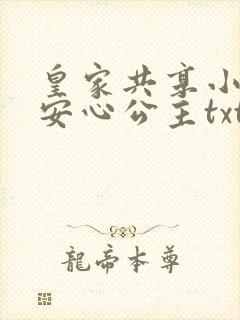 皇家共享小
安心公主txt
龍帝本尊